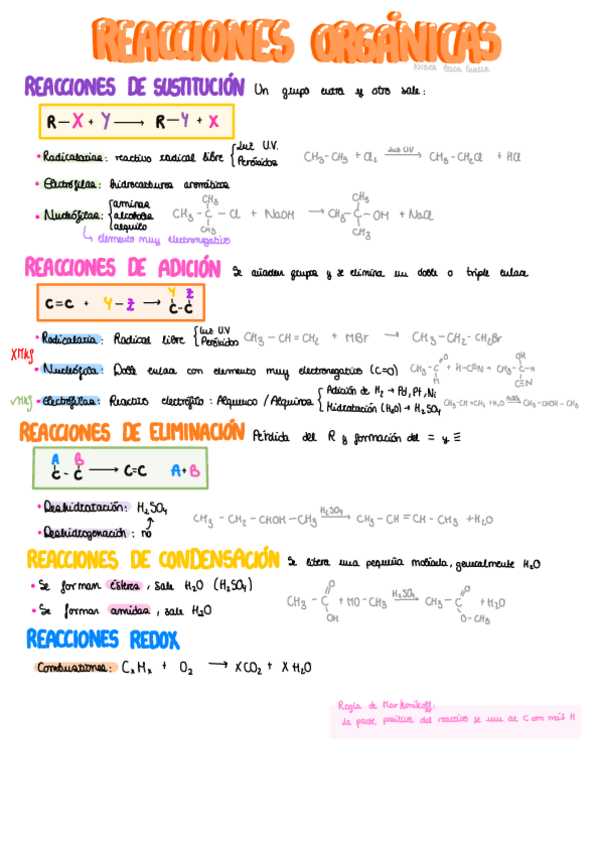 REACCIONES ORGÁNICAS
REACCIONES DE SUSTITUCIÓN Un grupo entra y otro sale:
R—X + Y ⟶ R—Y + X
• Radicalarias: reactivo radical libre { Luz U.V. Peróxidos CH3-CH3 + Cl2 Luz U.V. ⟶ CH3-CH2Cl + HCl
• Electrófilas: hidrocarburos aromáticos
• Nucleófilas: { aminas alcoholes alquilo CH3-C-Cl + NaOH ⟶ CH3-C-OH + NaCl
CH3 CH3 CH3 CH3
↳ elemento muy electronegativo
REACCIONES DE ADICIÓN Se añaden grupos y se elimina un doble o triple enlace
C=C + Y-Z ⟶ C-C
Y Z
• Radicalaria: Radical libre { Luz U.V Peróxidos CH3-CH=CH2 + HBr ⟶ CH3-CH2-CH2Br
XMkf
• Nucleófila: Doble enlace con elemento muy electronegativo (C=O) CH3-C + H-C≡N → CH3-C-H
O H OH C≡N
✓Mkf
• Electrófilas: Reactivo electrófilo: Alqueno/Alquinos { Adición de H2 → Pd, Pt, Ni Hidratación (H2O) → H2SO4 CH3-CH=CH2 + H2O H2SO4 → CH3-CHOH-CH3
REACCIONES DE ELIMINACIÓN Pérdida del R y formación del = y ≡
A B
C-C ⟶ C=C A+B
• Deshidratación: H2SO4
CH3-CH2-CHOH-CH3 H2SO4 ⟶ CH3-CH=CH-CH3 + H2O
• Deshidrogenación: no
REACCIONES DE CONDENSACIÓN Se libera una pequeña molécula, generalmente H2O
• Se forman ésteres, sale H2O (H2SO4)
CH3-C + HO-CH3 H2SO4 ⟶ CH3-C + H2O
O OH O O-CH3
• Se forman amidas, sale H2O
REACCIONES REDOX
Combustiones: CxHx + O2 ⟶ XCO2 + XH2O
Regla de Markonikoff:
La parte positiva del reactivo se une al C con más H